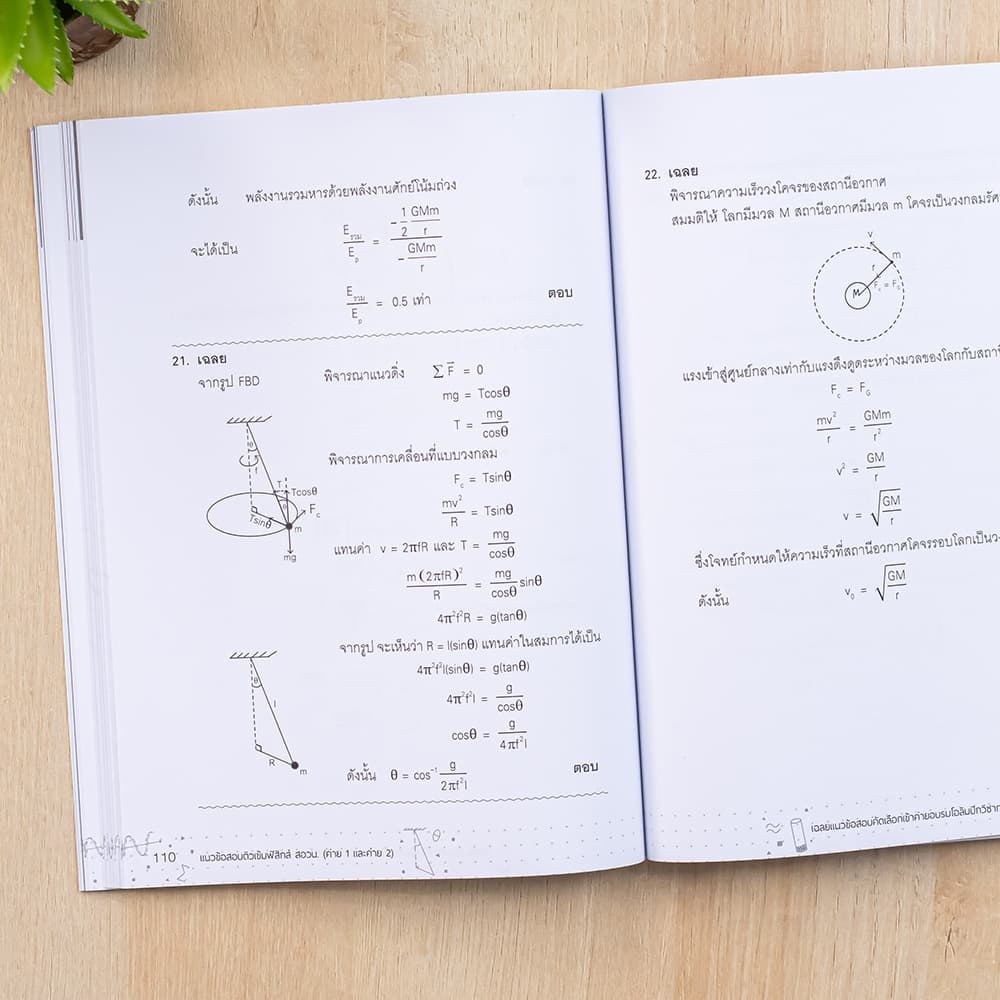 ดังนั้น พลังงานรวมหารด้วยพลังงานศักย์โน้มถ่วง
จะได้เป็น E รวม / E p = (-1/2 GMm/r) / (-GMm/r)
E รวม / E p = 0.5 เท่า ตอบ
21. เฉลย
จากรูป FBD พิจารณาแนวดิ่ง ΣF⃗ = 0
mg = Tcosθ
T = mg/cosθ
พิจารณาการเคลื่อนที่แบบวงกลม
F c = Tsinθ
mv²/R = Tsinθ
แทนค่า v = 2πfR และ T = mg/cosθ
m(2πfR)²/R = mg/cosθ sinθ
4π²f²R = g(tanθ)
จากรูป จะเห็นว่า R = l(sinθ) แทนค่าในสมการได้เป็น
4π²f²l(sinθ) = g(tanθ)
4π²f²l = g/cosθ
cosθ = g/4πf²l
ดังนั้น θ = cos⁻¹ g/2πf²l ตอบ
θ
f
T
Tcosθ
θ
F c
Tsinθ
m
mg
θ
l
R
m
110 แนวข้อสอบติวเข้มฟิสิกส์ สอวน. (ค่าย 1 และค่าย 2)
θ
22. เฉลย
พิจารณาความเร็ววงโคจรของสถานีอวกาศ
สมมติให้ โลกมีมวล M สถานีอวกาศมีมวล m โคจรเป็นวงกลมรัศ
v
m
r
F c = F G
M
แรงเข้าสู่ศูนย์กลางเท่ากับแรงดึงดูดระหว่างมวลของโลกกับสถานี
F c = F G
mv²/r = GMm/r²
v² = GM/r
v = √(GM/r)
ซึ่งโจทย์กำหนดให้ความเร็วที่สถานีอวกาศโคจรรอบโลกเป็นว
ดังนั้น v₀ = √(GM/r)
เฉลยแนวข้อสอบคัดเลือกเข้าค่ายอบรมโอลิมปิกวิชาก